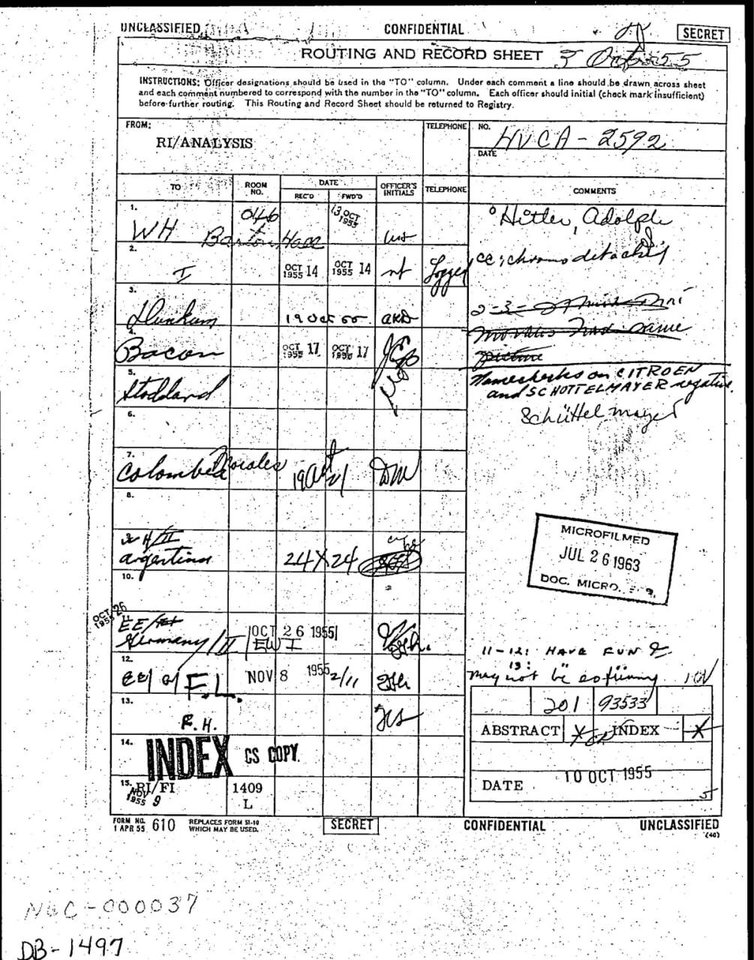 UNCLASSIFIED CONFIDENTIAL SECRET
ROUTING AND RECORD SHEET 3 Oct 55
INSTRUCTIONS: Officer designations should be used in the "TO" column. Under each comment a line should be drawn across sheet
and each comment numbered to correspond with the number in the "TO" column. Each officer should initial (check mark insufficient)
before further routing. This Routing and Record Sheet should be returned to Registry.
FROM: TELEPHONE NO. HVCA-2592
RI/ANALYSIS
DATE
TO ROOM NO. DATE OFFICER'S INITIALS TELEPHONE COMMENTS
REC'D FWD'D
1. WH Barton Hall 046 13 OCT 1955
Hitler, Adolph
2. I OCT 1955 14 OCT 1955 14 Logged
cc: chrono detached
3. Dunham 19 Oct 55 AKD
2-3-
4. Bacon OCT 1955 17 OCT 1955 17
name
picture
Namechecks on CITROEN
and SCHOTTELMAYER negative.
5. Stoddard
Schüttelmayer
6.
7. Colombia Morales 19 Oct 21 DM
8.
WH/II
Argentina 24 X 24
10.
MICROFILMED
JUL 26 1963
DOC. MICRO. SER.
OCT 1955 26
EE/
Germany/II OCT 26 1955 EW I
11-12: HAVE FUN
12. EE/ F.L. NOV 8 1955 2/11
13:
may not be so funny
13. R.H.
201 93533
ABSTRACT X INDEX X
14. INDEX CS COPY
DATE 10 OCT 1955
15. RI/FI 1409 L
NOV 1955 9
5
FORM NO. 610 REPLACES FORM 51-10
1 APR 55 WHICH MAY BE USED.
SECRET CONFIDENTIAL UNCLASSIFIED
(40)
NGC-000037
DB-1497